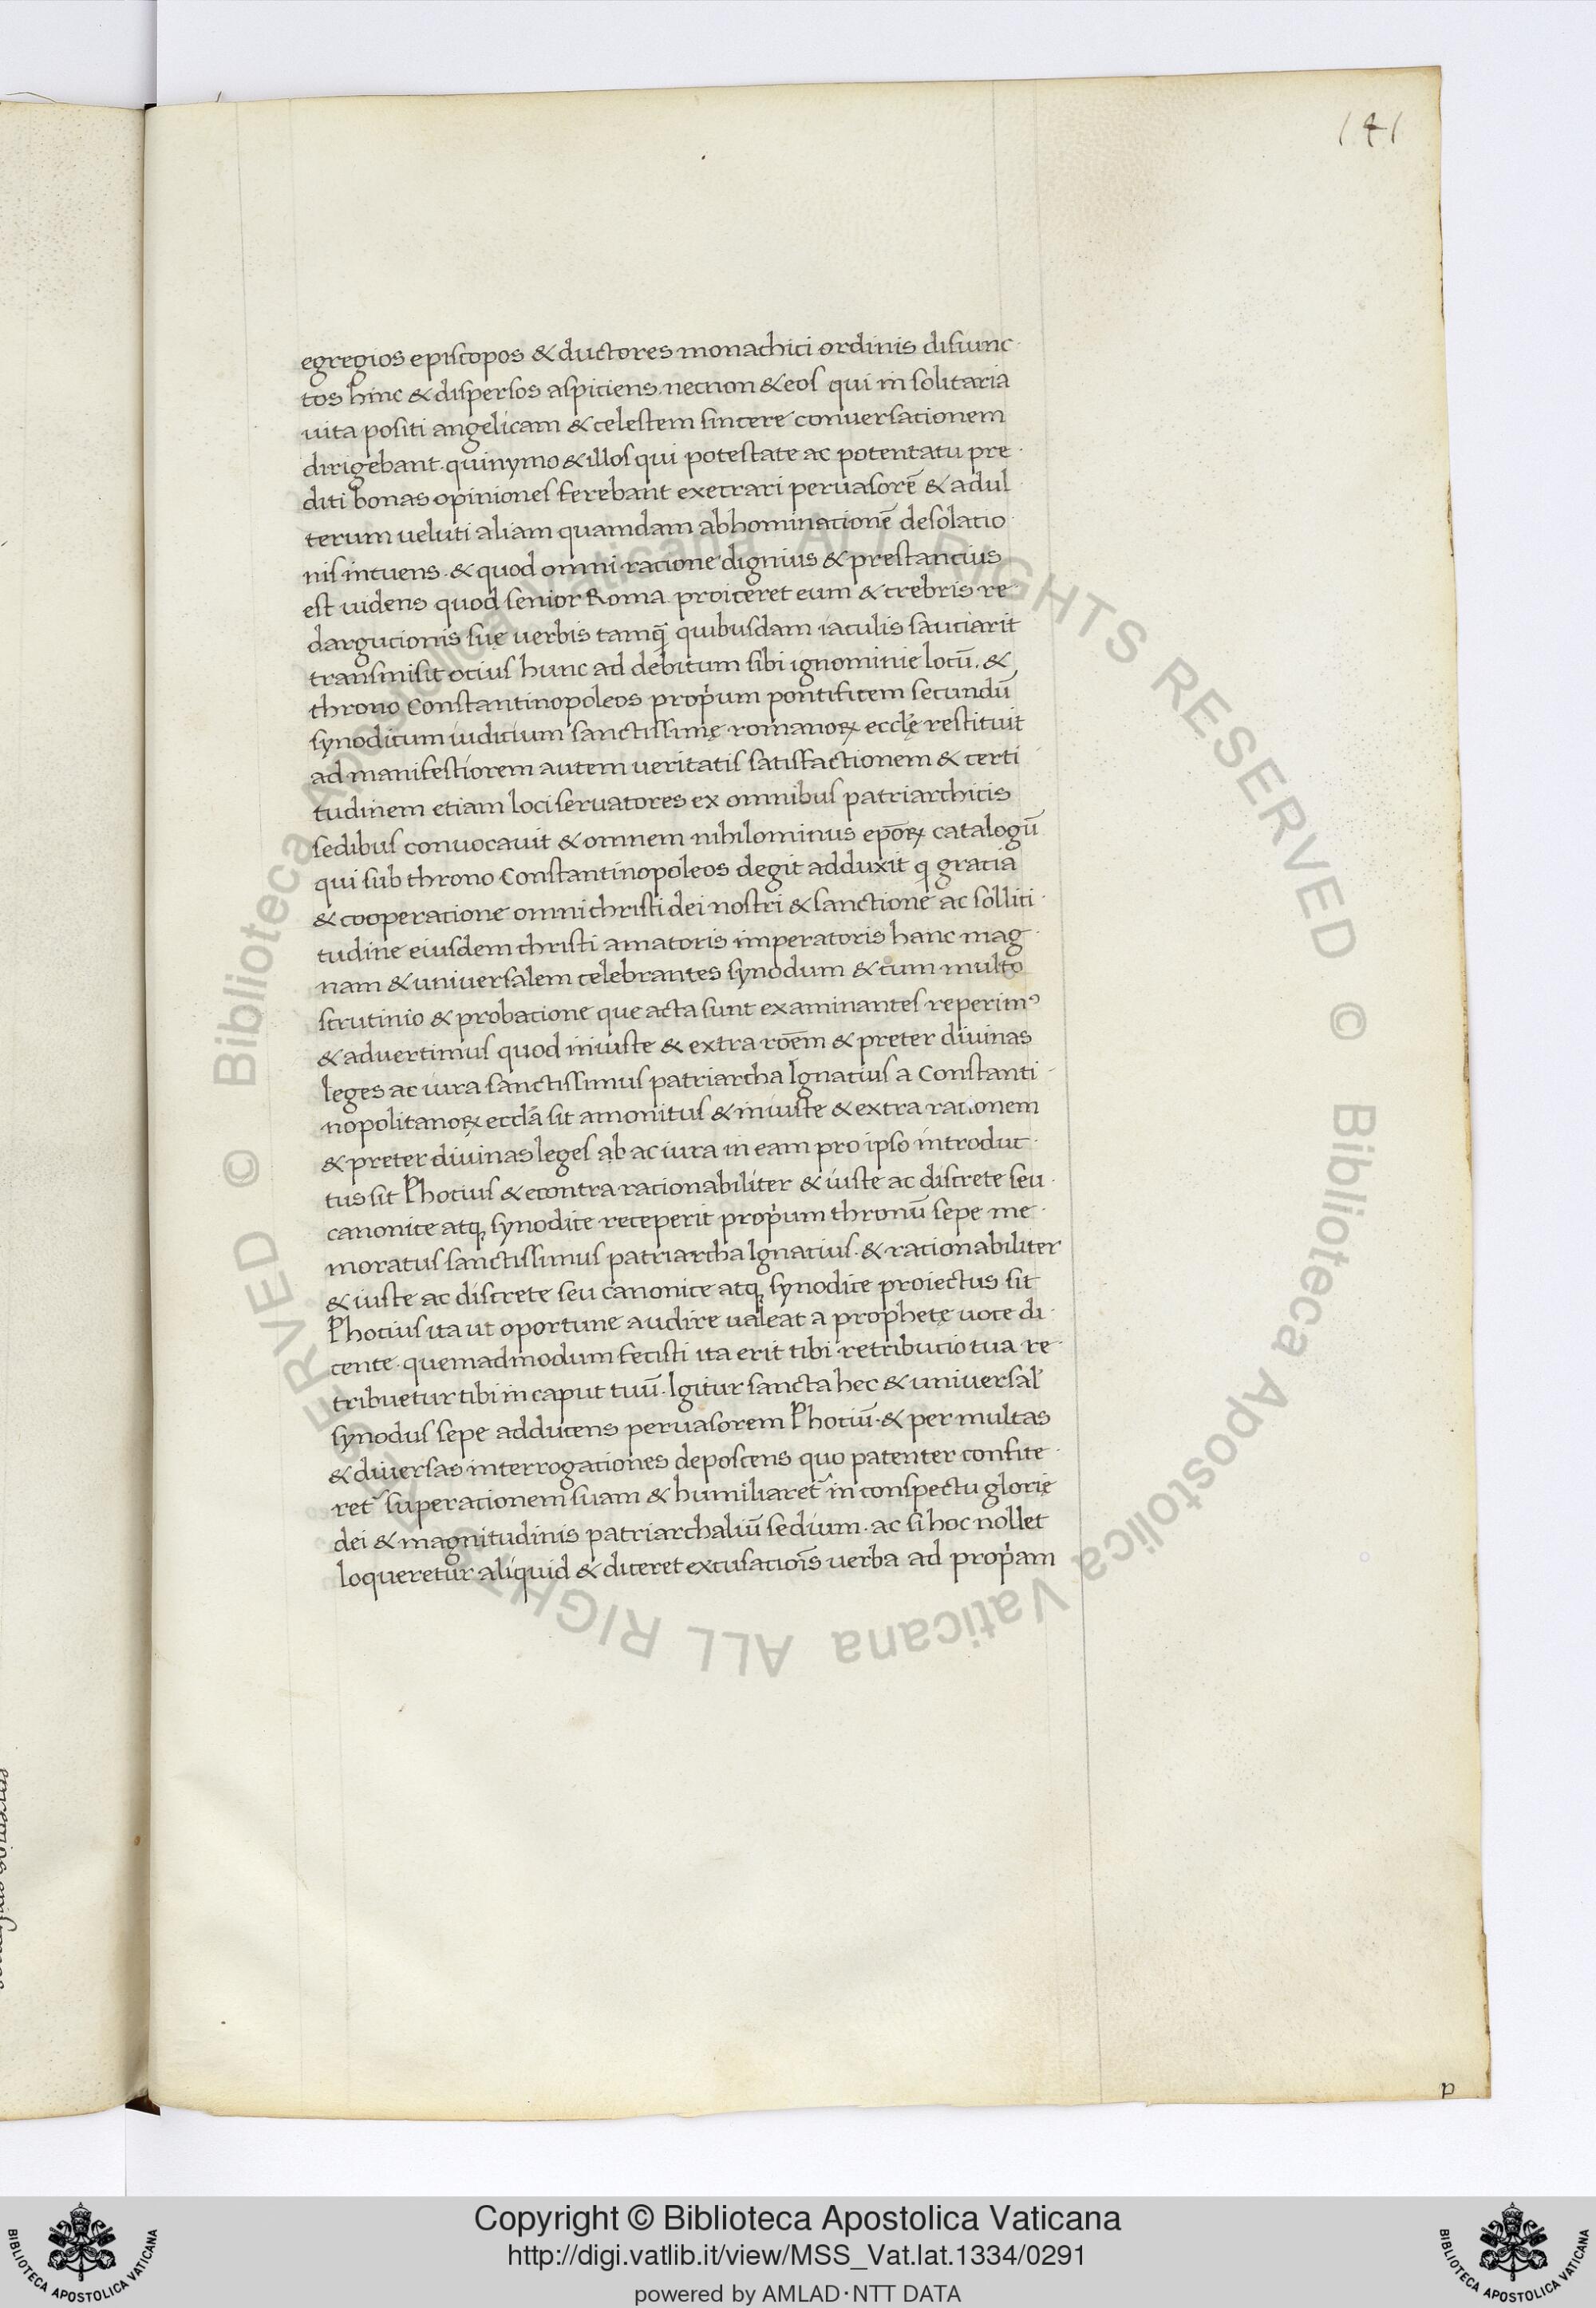 141
egregios episcopos & ductores monachici ordinis disiunc
tos hinc & dispersos aspiciens. necnon & eos qui in solitaria
uita positi angelicam & celestem sincere conuersacionem
dirigebant. quinymo & illos qui potestate ac potentatu pre
diti bonas opiniones ferebant execrari peruasorē & adul
terum ueluti aliam quamdam abhominacionē desolacio
nis intuens. & quod omni racione dignius & prestancius
est uidens quod senior Roma proiceret eum & crebris re
dargucionis suę uerbis tamq̄ quibusdam iaculis sauciarit
transmisit ocius hunc ad debitum sibi ignominie locū. &
throno Constantinopoleos prop̍um pontificem secundū
synodicum iudicium sanctissimę romanoꝝ ecclę̄ restituit
ad manifestiorem autem ueritatis satisfactionem & certi
tudinem etiam loci seruatores ex omnibus patriarchicis
sedibus conuocauit & omnem nihilominus epōꝝ catalogū
qui sub throno Constantinopoleos degit adduxit q gracia
& cooperacione omni christi dei nostri & sanctione ac solliti
tudine eiusdem christi amatoris imperatoris hanc mag
nam & uniuersalem celebrantes synodum & cum multo
scrutinio & probacione que acta sunt examinantes reperimꝰ
& aduertimus quod iniuste & extra roēm & preter diuinas
leges ac iura sanctissimus patriarcha Ignacius a Constanti
nopolitanoꝝ ecclā sit amonitus & iniuste & extra racionem
& preter diuinas leges ab ac iura in eam pro ipso introduc
tus sit Photius & econtra racionabiliter & iuste ac discrete seu
canonice atq; synodice receperit prop̍um thronū sepe me
moratus sanctissimus patriarcha Ignacius. & racionabiliter
& iuste ac discrete seu canonice atq; synodice proiectus sit
Photius ita ut oportune audire ualeat a prophetę uoce di
cente. quemadmodum fecisti ita erit tibi retribucio tua re
tribuetur tibi in caput tuū. Igitur sancta hec & uniuersal̍
synodus sepe adducens peruasorem Photiū. & per multas
& diuersas interrogaciones deposcens quo patenter confite
ret᷑ superacionem suam & humiliaret᷑ in conspectu glorię
dei & magnitudinis patriarchaliū sedium. ac si hoc nollet
loqueretur aliquid & diceret excusacioīs uerba ad prop̍am
p
© Biblioteca Apostolica Vaticana ALL RIGHTS RESERVED © Biblioteca Apostolica Vaticana ALL RIGHTS RESERVED
Copyright © Biblioteca Apostolica Vaticana
http://digi.vatlib.it/view/MSS_Vat.lat.1334/0291
powered by AMLAD·NTT DATA
BIBLIOTECA APOSTOLICA VATICANA
BIBLIOTECA APOSTOLICA VATICANA